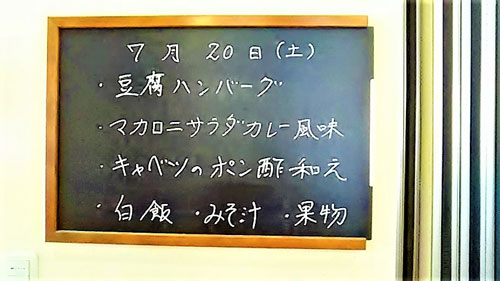 7月20日(土)
・豆腐ハンバーグ
・マカロニサラダカレー風味
・キャベツのポン酢和え
・白飯 ・みそ汁 ・果物